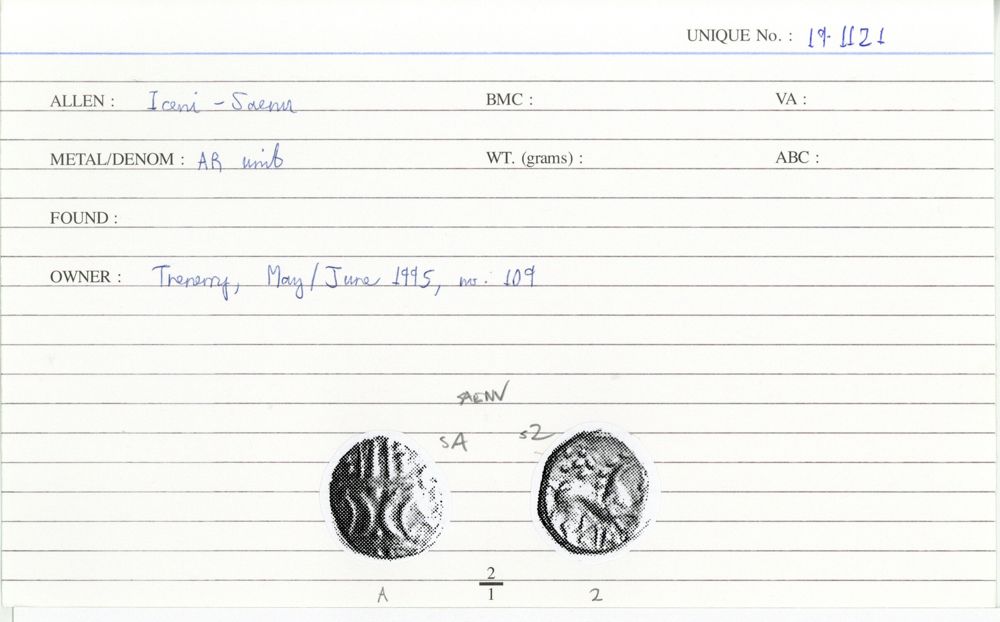 UNIQUE No. : 19.1121
ALLEN : Iceni - Saenu BMC : VA :
METAL/DENOM : AR unit WT. (grams) : ABC :
FOUND :
OWNER : Trenerry, May/June 1995, no. 109
SAENV
SA S2
2
1
A 2